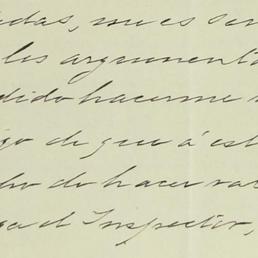 das, pues
los argumento
dido hacerme
go de que á est
ho de hacer
el Inspector,